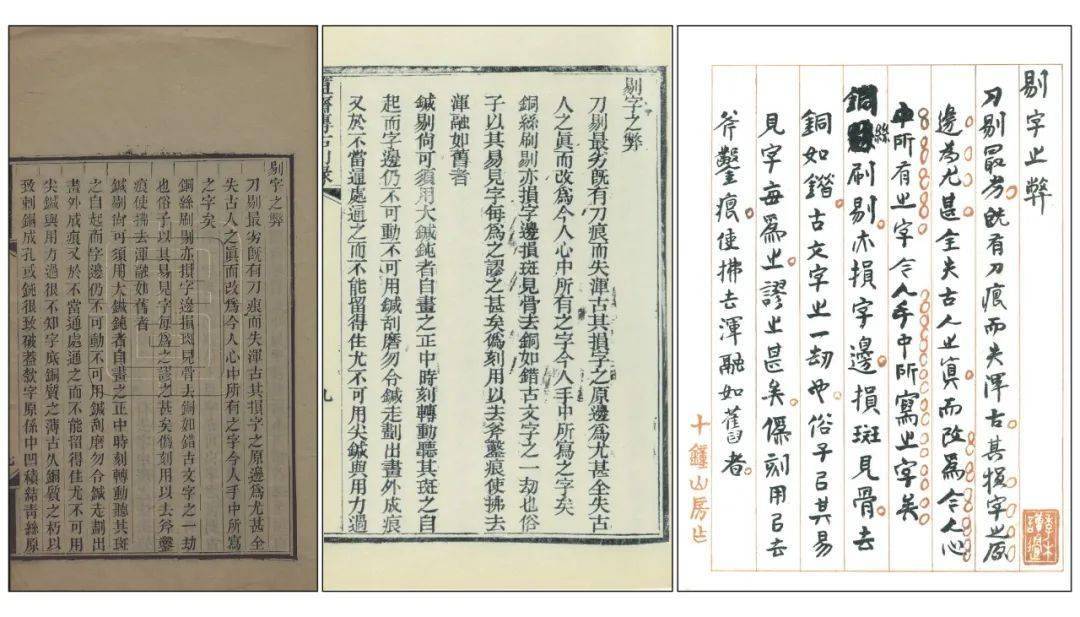 剔字之弊
刀剔最劣既有刀痕而失渾古其損字之原邊爲尤甚全
失古人之眞而改爲今人心中所有之字今人手中所寫
之字矣
銅絲刷剔亦損字邊損斑見骨去銅如錯古文字之一劫
也俗子以其易見字每爲之謬之甚矣僞刻用以去斧鑿
痕使拂去渾融如舊者
鍼剔尚可須用大鍼鈍者自畫之正中時刻轉動聽其斑
之自起而字邊仍不可動不可用鍼刮磨勿令鍼走劃出
畫外成痕又於不當通處通之而不能留得住尤不可用
尖鍼與用力過很不知字底銅質之薄古久銅質之朽以
致刺銅成孔或鈍很致破蓋欵字原係中凹積結青綠原
剔字之弊
刀剔最劣既有刀痕而失渾古其損字之原邊爲尤甚全失古
人之眞而改爲今人心中所有之字今人手中所寫之字矣
銅絲刷剔亦損字邊損斑見骨去銅如錯古文字之一劫也俗
子以其易見字每爲之謬之甚矣僞刻用以去斧鑿痕使拂去
渾融如舊者
鍼剔尚可須用大鍼鈍者自畫之正中時刻轉動聽其斑之自
起而字邊仍不可動不可用鍼刮磨勿令鍼走劃出畫外成痕
又於不當通處通之而不能留得住尤不可用尖鍼與用力過
九
剔字之弊
刀剔最劣既有刀痕而失渾古其損字之原
邊為尤甚全失古人之真而改為今人心
中所有之字今人手中所寫之字矣
銅絲刷剔亦損字邊損斑見骨去
銅如錯古文字之一劫也俗子以其易
見字每為之謬之甚矣偽刻用以去
斧鑿痕使拂去渾融如舊者
十鐘山房止